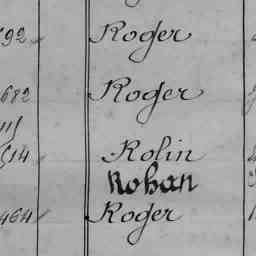 692 Roger
682 Roger
514 Rolin
Rohan
464 Roger